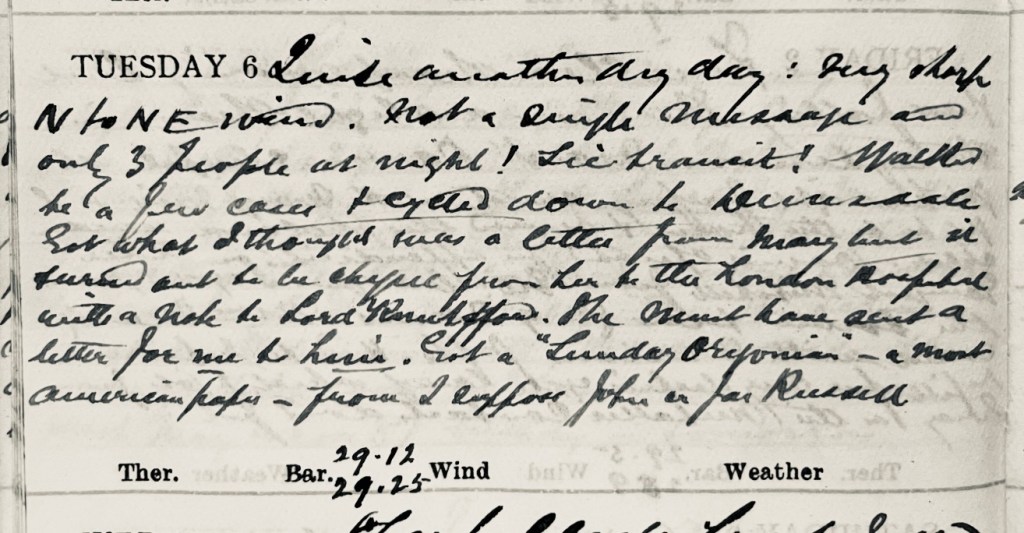 TUESDAY 6 Quite another dry day : very sharp
N to NE wind. Not a single message and
only 3 people at night! Sic transit! Walked
to a few cases & cycled down to
Got what I thought was a letter from Mary but it
turned out to be cheque from her to the London Hospital
with a note to Lord Knutsford. She must have sent a
letter for me to him. Got a "Sunday Oregonian" - a most
American paper - from I suppose John or Jas Russell
Ther. Bar. 29.12 Wind Weather
29.25